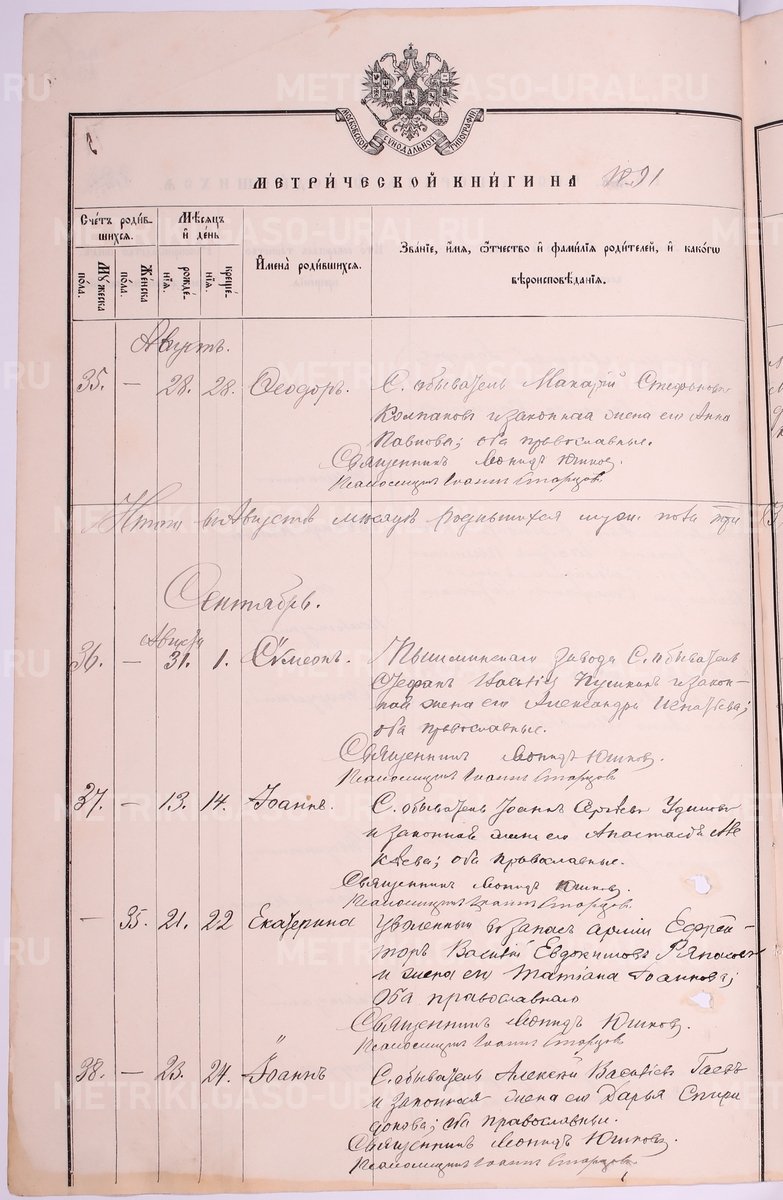 МОСКОВСКОЙ СѴНОДАЛЬНОЙ ТИПОГРАФІИ
МЕТРИ́ЧЕСКОЙ КНИ́ГИ НА 1891
Сче́тъ роди́в-
шихся.
Мѣ́сяцъ
и҆ де́нь
И҆мена̀ роди́вшихся.
Зва́нїе, и҆́мя, ѻ҆́тчество и҆ фамі́лїя роди́телей, и҆ како́гѡ
вѣроисповѣ́данїя.
Мꙋжеска
пола.
Женска
пола.
рожде́-
нїя.
креще́-
нїя.
Августъ.
35. — 28. 28. Ѳеодоръ. С. обыватель Макарій Стефановъ
Колпаковъ и законная жена его Анна
Павлова; оба православные.
Священникъ Леонидъ Юшковъ.
Псаломщикъ Іоаннъ Старцовъ
Итого въ Августѣ мѣсяцѣ родившихся муж. пола три
Сентябрь.
Августа
36. — 31. 1. Сѵмеонъ. Пышминскаго завода С. обыватель
Стефанъ Пушкинъ и закон-
ная жена его Александра Игнатьева;
оба православные.
Священникъ Леонидъ Юшковъ.
Псаломщикъ Іоаннъ Старцовъ
37. — 13. 14. Іоаннъ. С. обыватель Іоаннъ
и законная жена его Анастасія Але
ксѣева; оба православные.
Священникъ Леонидъ Юшковъ.
Псаломщикъ Іоаннъ Старцовъ
— 35. 21. 22 Екатерина Уволенный въ запасъ арміи Ефрей-
торъ Василій Евдокимовъ
и жена его Татіана Іоаннова;
оба православнаго
Священникъ Леонидъ Юшковъ.
Псаломщикъ Іоаннъ Старцовъ
38. — 23. 24. Іоаннъ С. обыватель Алексѣй Васильевъ Гаевъ
и законная жена его Дарья Спири
донова; оба православные.
Священникъ Леонидъ Юшковъ.
Псаломщикъ Іоаннъ Старцовъ
METRIKI.GASO-URAL.RU